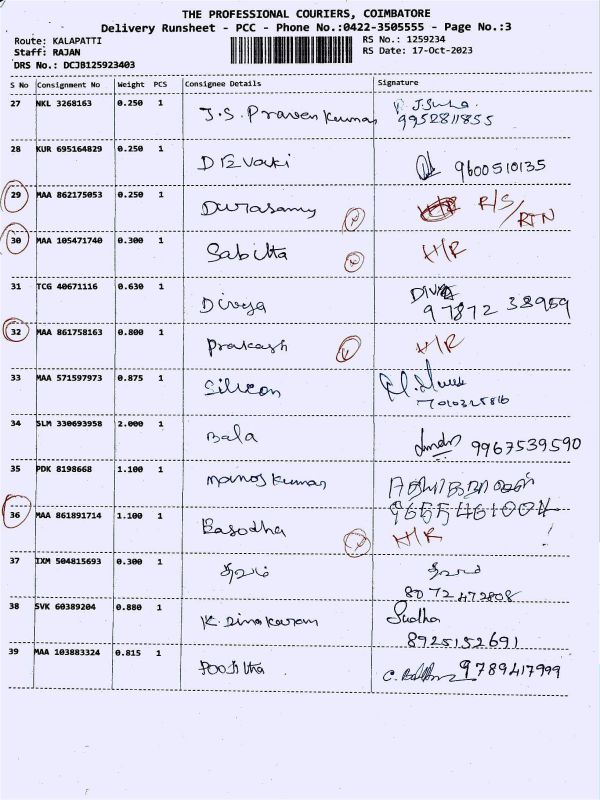 THE PROFESSIONAL COURIERS, COIMBATORE
Delivery Runsheet - PCC - Phone No.:0422-3505555 - Page No.:3
Route: KALAPATTI RS No.: 1259234
Staff: RAJAN RS Date: 17-Oct-2023
DRS No.: DCJB125923403
S No Consignment No Weight PCS Consignee Details Signature
27 NKL 3268163 0.250 1 J.S. Praveen Kumar 9952811855
28 KUR 695164829 0.250 1 Devaki 9600510135
29 MAA 862175053 0.250 1 Durasamy R/S/RTN
30 MAA 105471740 0.300 1 Sabitta H/R
31 TCG 40671116 0.630 1 Divya DIVYA
97872 38959
32 MAA 861758163 0.800 1 Prakash H/R
33 MAA 571597973 0.875 1 Silicon
7010325816
34 SLM 330693958 2.000 1 Bala 9967539590
35 PDK 8198668 1.100 1 Manoj Kumar
9655461004
36 MAA 861891714 1.100 1 Easodha H/R
37 IXM 504815693 0.300 1
8072472808
38 SVK 60389204 0.880 1 K. Dinakaran Sudha
8925152691
39 MAA 103883324 0.815 1 Poojitha 9789417999